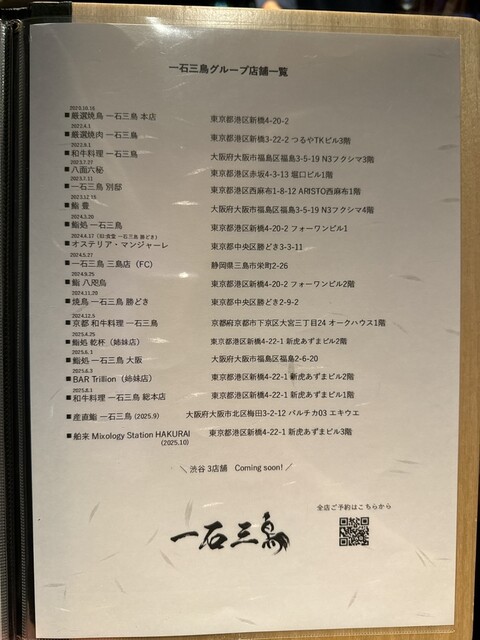 一石三鳥グループ店舗一覧
2020.10.16
■厳選焼鳥 一石三鳥 本店 東京都港区新橋4-20-2
2022.6.1
■厳選焼肉 一石三鳥 東京都港区新橋3-22-2 つるやTKビル3階
2022.9.1
■和牛料理 一石三鳥 大阪府大阪市福島区福島3-5-19 N3フクシマ3階
2023.7.27
■八面六秘 東京都港区赤坂4-3-13 堀口ビル1階
2023.7.11
■一石三鳥 別邸 東京都港区西麻布1-8-12 ARISTO西麻布1階
2023.12.18
■鮨 豊 大阪府大阪市福島区福島3-5-19 N3フクシマ4階
2024.3.20
■鮨処 一石三鳥 東京都港区新橋4-20-2 フォーワンビル1
2024.6.17 (旧:食堂 一石三鳥 勝どき)
■オステリア・マンジャーレ 東京都中央区勝どき3-3-11
2024.5.27
■一石三鳥 三島店（FC） 静岡県三島市栄町2-26
2024.9.25
■鮨 八咫烏 東京都港区新橋4-20-2 フォーワンビル2階
2024.11.20
■焼鳥 一石三鳥 勝どき 東京都中央区勝どき2-9-2
2024.12.5
■京都 和牛料理 一石三鳥 京都府京都市下京区大宮三丁目24 オークハウス1階
2025.4.25
■鮨処 乾杯（姉妹店） 東京都港区新橋4-22-1 新虎あずまビル2階
2025.6.1
■鮨処 一石三鳥 大阪 大阪府大阪市福島区福島2-6-20
2025.6.3
■BAR Trillion（姉妹店） 東京都港区新橋4-22-1 新虎あずまビル2階
2025.8.1
■和牛料理 一石三鳥 総本店 東京都港区新橋4-22-1 新虎あずまビル1階
■産直鮨 一石三鳥 (2025.9) 大阪府大阪市北区梅田3-2-12 バルチカ03 エキウエ
■舶来 Mixology Station HAKURAI 東京都港区新橋4-22-1 新虎あずまビル3階
(2025.10)
＼ 渋谷 3店舗 Coming soon! ／
全店ご予約はこちらから
一石三鳥